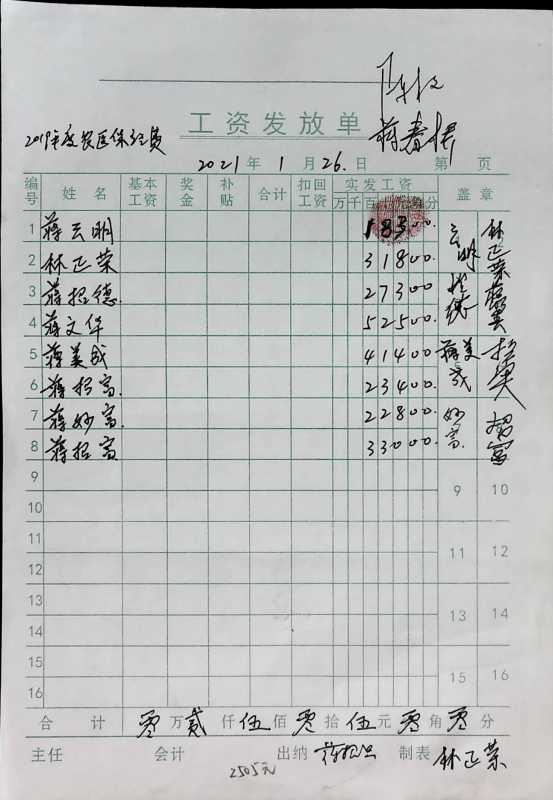 2019年度农医保经费
工资发放单
蒋春
2021年1月26日 第1页
编号 姓名 基本工资 奖金 补贴 合计 扣回工资 实发工资 盖章
万 千 百 元 角 分
1 蒋云明 18300. 云明 林正荣
2 林正荣 31800.
3 蒋招德. 27300.
4 蒋文华 52500.
5 蒋美成 41400. 蒋美成
6 蒋招富. 23400.
7 蒋妙富. 22800. 妙富. 招富
8 蒋招富 33000.
9 9 10
10
11 11 12
12
13 13 14
14
15 15 16
16
合计 零万贰仟伍佰零拾伍元零角零分
主任 会计 出纳 制表 林正荣
2505元